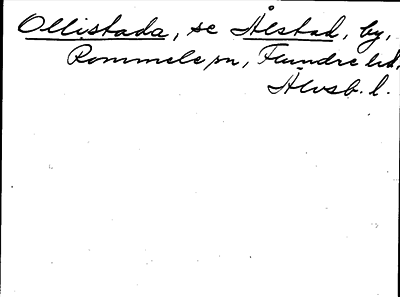 Ollistada, se Ålstad, by,
Rommele sn, Flundre hd,
Älvsb. l.